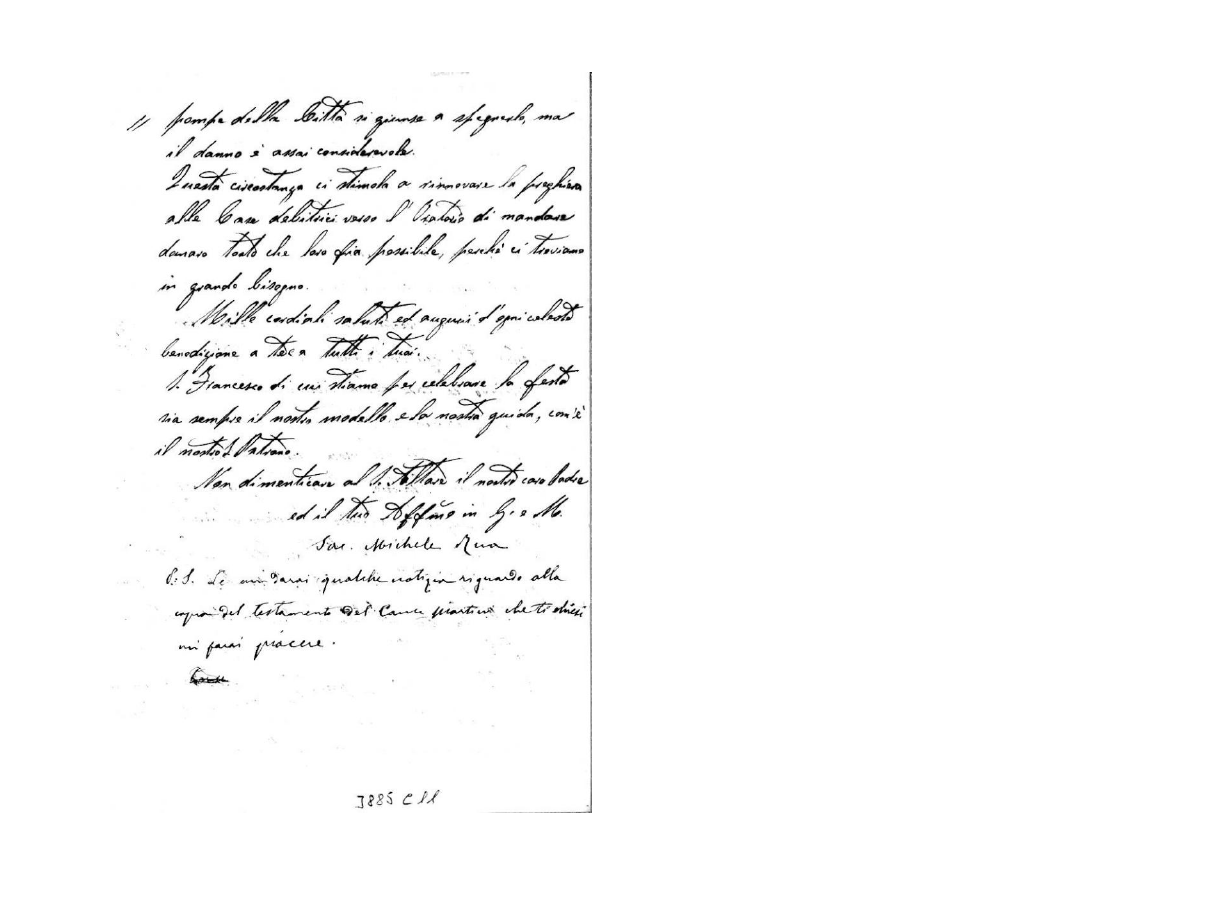 // pompe della Città si giunse a spegnerlo, ma
il danno è assai considerevole.
Questa circostanza ci stimola a rinnovare la preghiera
alle Case debitrici verso l'Oratorio di mandare
danaro tosto che loro fia possibile, perchè ci troviamo
in grande bisogno.
Mille cordiali saluti ed augurii d'ogni celeste
benedizione a te e a tutti i tuoi.
S. Francesco di cui stiamo per celebrare la festa
sia sempre il nostro modello e la nostra guida, com'è
il nostro S. Patrono.
Non dimenticare al S. Altare il nostro caro Padre
ed il tuo Aff.mo in G. e M.
Sac. Michele Rua
P.S. Se mi darai qualche notizia riguardo alla
copia del testamento del Canco Martini che ti chiesi
mi farai piacere.
3885 C 11